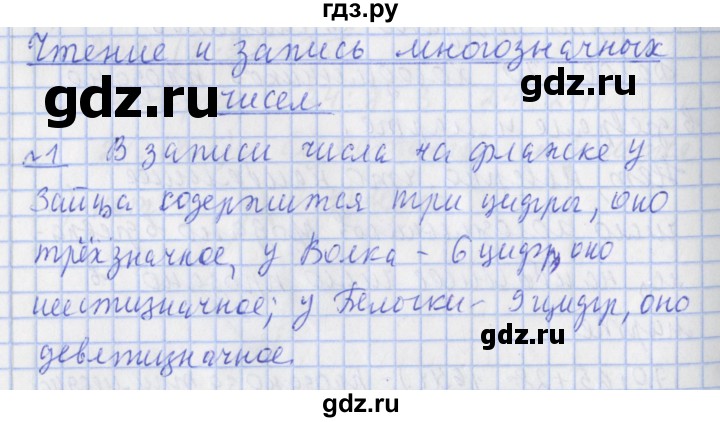 гдз.ру
Чтение и запись многозначных
gdz.ru чисел. gdz.ru
№1 В записи числа на флажке у
Зайца содержится три цифры, оно
трёхзначное, у Волка - 6 цифр, оно
шестизначное; у Белочки - 9 цифр, оно
gdz.ru
девятизначное.
gdz.ru